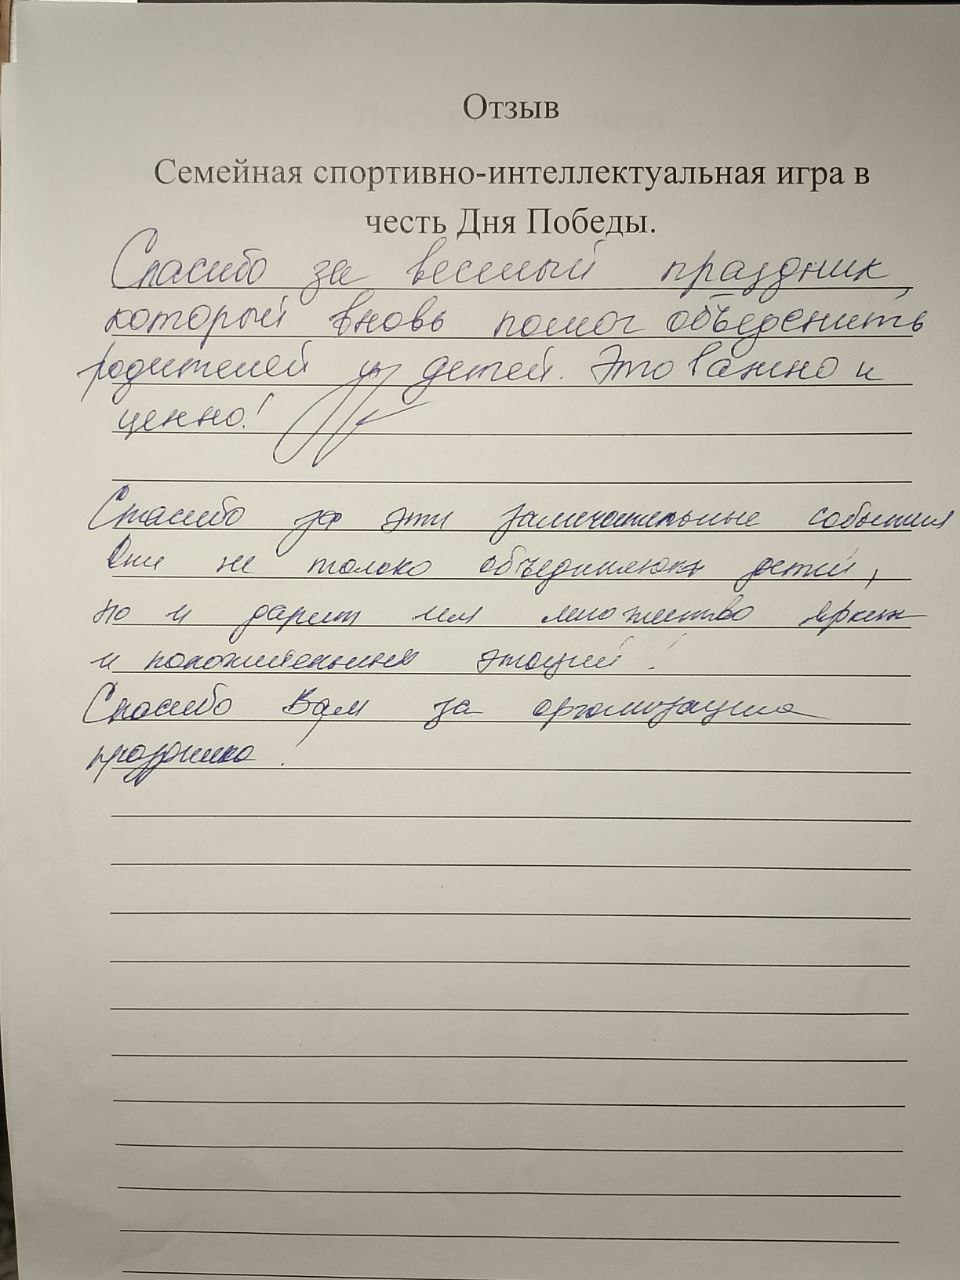 Отзыв
Семейная спортивно-интеллектуальная игра в
честь Дня Победы.
Спасибо за веселый праздник,
который вновь помог объеденить
родителей и детей. Это важно и
ценно!
Спасибо за эти замечательные события
Они не только объединяют детей,
но и дарит им множество ярких
и положительных эмоций!
Спасибо Вам за организацию
праздника!